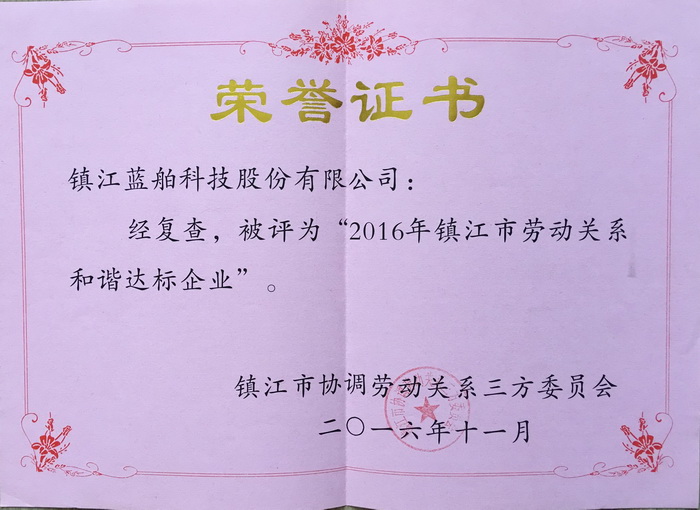 荣誉证书
镇江蓝舶科技股份有限公司：
经复查，被评为“2016年镇江市劳动关系
和谐达标企业”。
镇江市协调劳动关系三方委员会
二〇一六年十一月